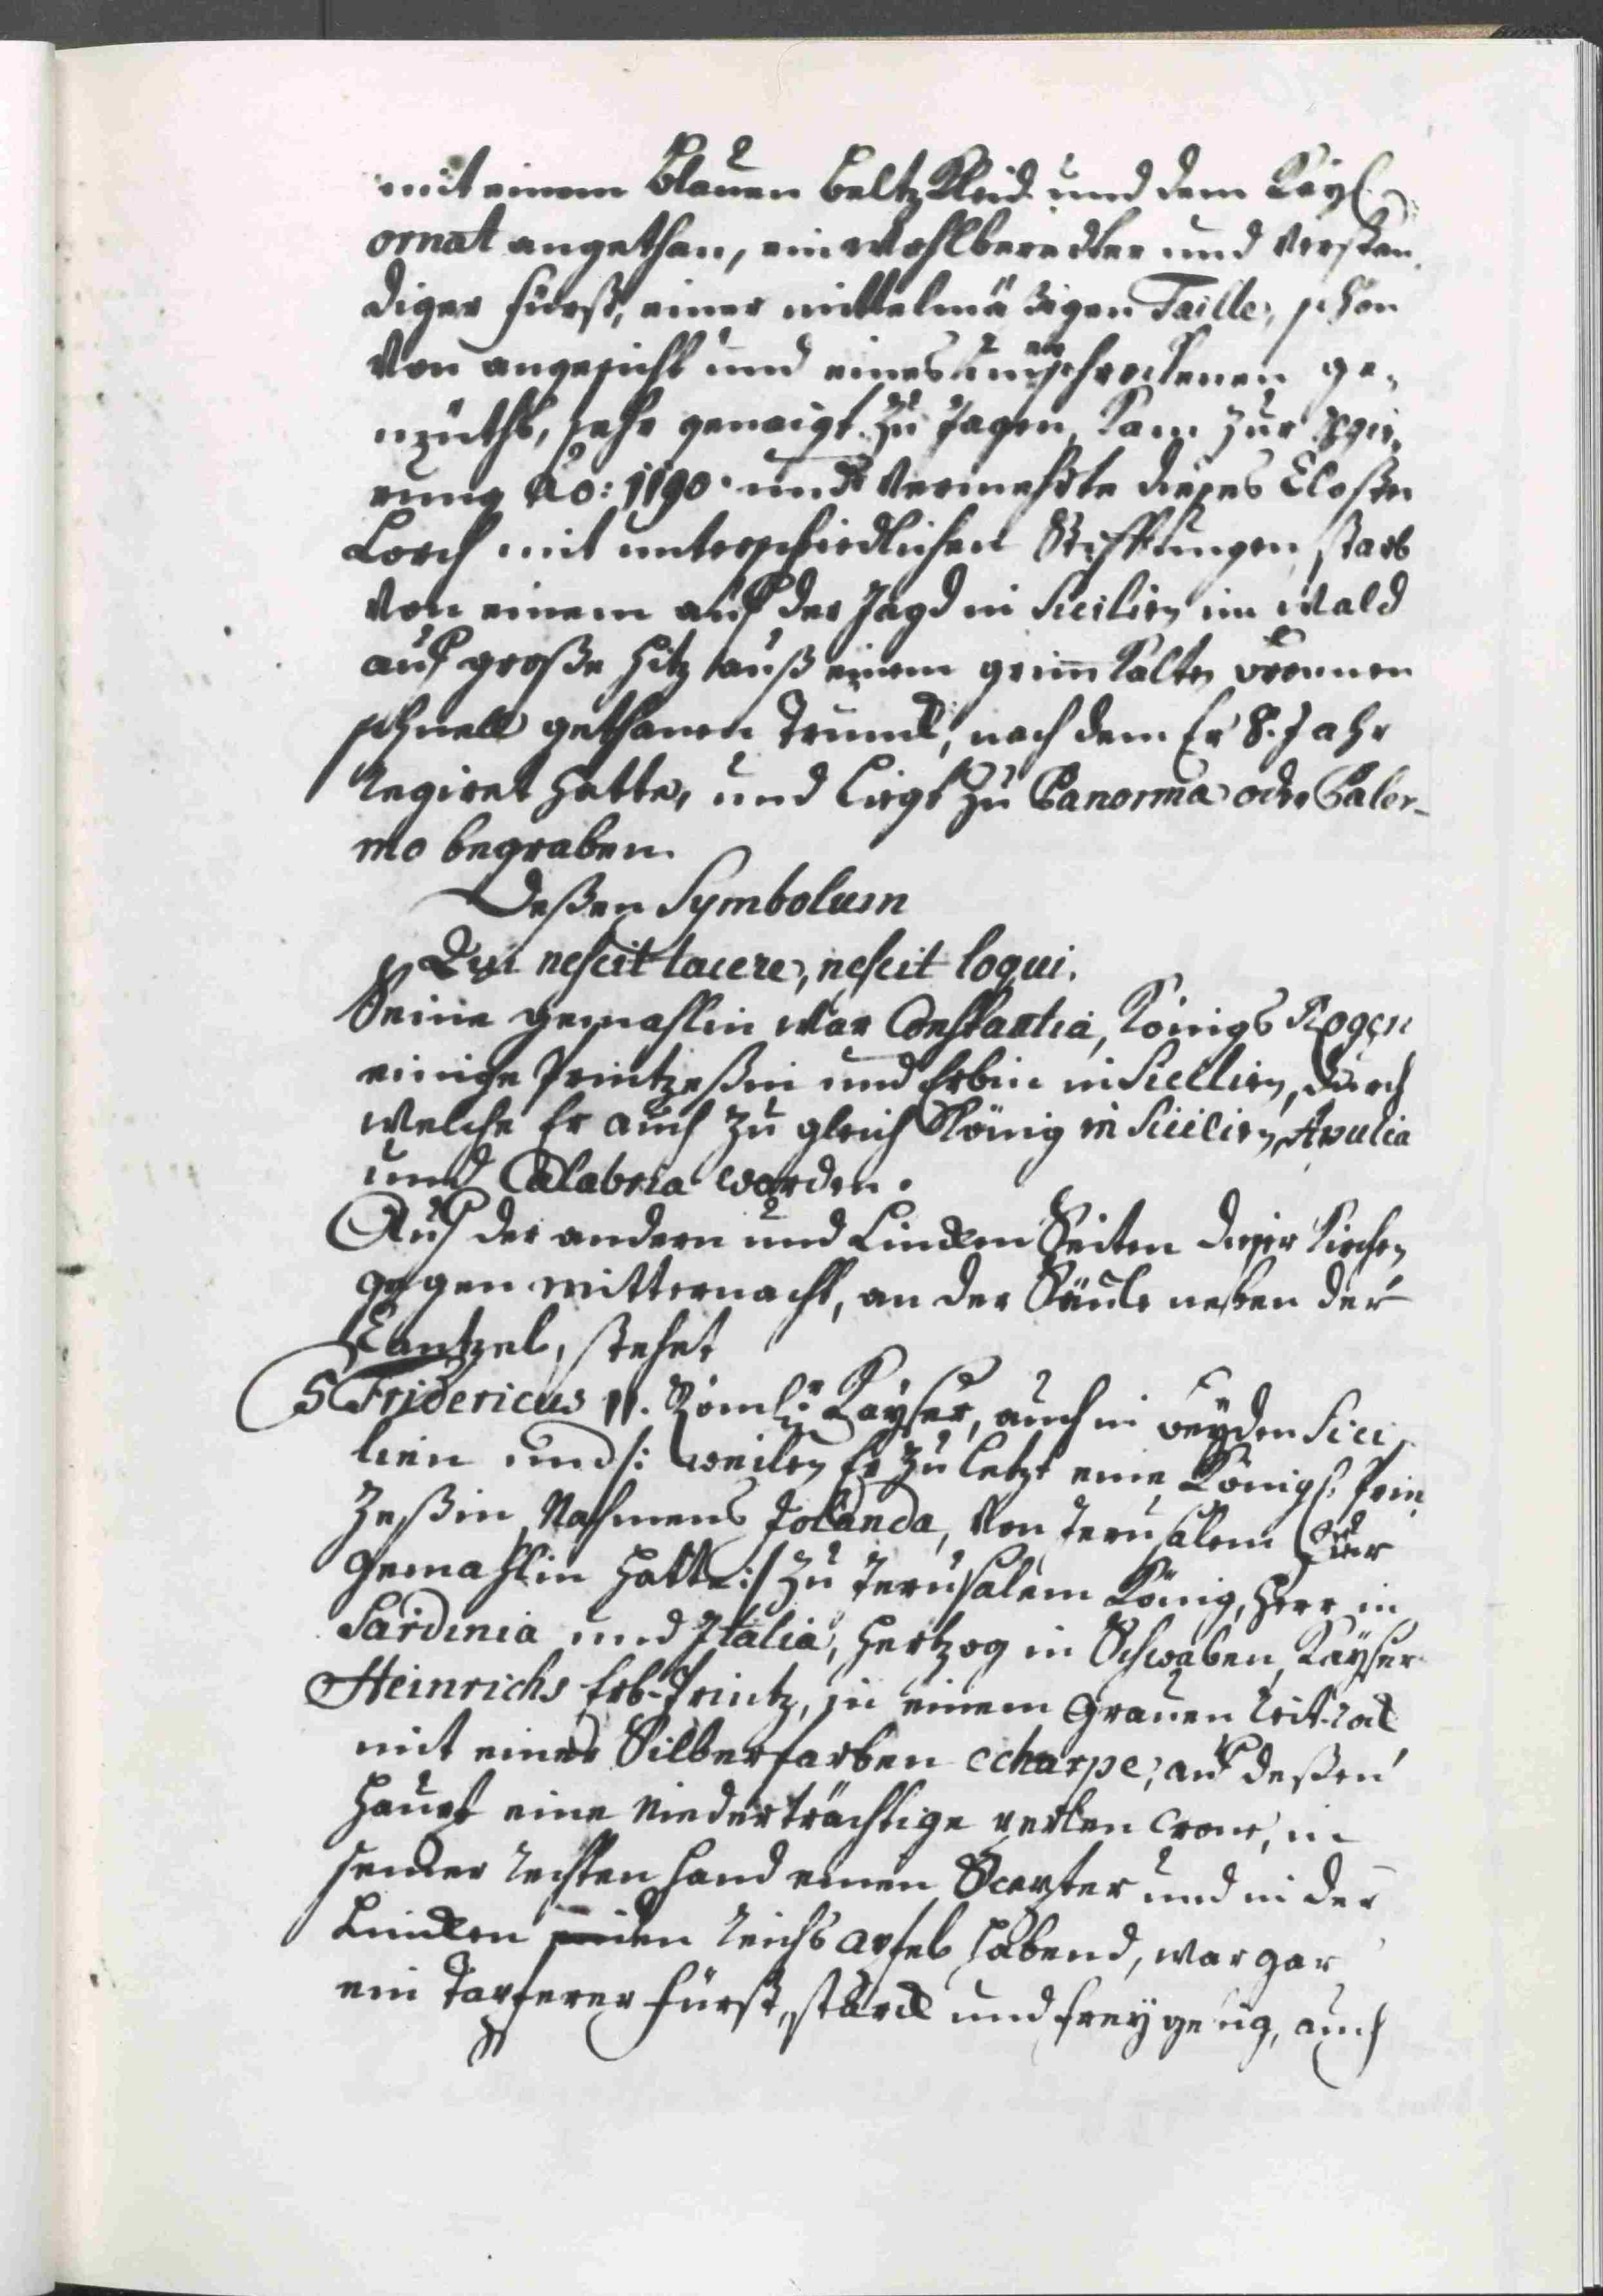 mit einem blauen beltz Kleid und dem Kayl.
ornat angethan, ein wohlberedter und verstän
diger fürst, einer mittelmäßigen Taille, schön
von angesicht und eines unerschrockenen ge-
müths, sehr geneigt zu Jagen, kam zur Regie-
rung Ao: 1190. und vermehrte dieses Closter
Lorch mit unterschiedlichen Stifftungen, starb
von einem auf der Jagd in Sicilien im Wald
auf große hitz auß einem grim̄ kalten bronnen
schnell gethanen Trunck, nach dem Er 8. Jahr
regiret hatte, und ligt zu Panorma oder Paler-
mo begraben.
Deßen Symbolum
Qui nescit tacere, nescit loqui.
Seine gemahlin war Constantia, Königs Rogeri
einige Printzeßin und Erbin in Sicilien, durch
welche Er auch zu gleich König in Sicilien, Apulia
und Calabria worden.
Auf der andern und Lincken Seiten dieser Kirchen
gegen mitternacht, an der Säule neben der
Cantzel, stehet
5 Fridericus II. Römlr: Kayser, auch in beyden Sici
lien und /: weilen Er zu letzt eine Königl. Prin
zeßin, Nahmens Jolanda, von Jerusalem zur
gemahlin hatte :/ zu Jerusalem König, herr in
Sardinia und Italia, hertzog in Schwaben, Kaysers
Heinrichs Erb-Printz, in einem grauen reit-rock
mit einer Silberfarben echarpe, auf deßen
haupt eine niederträchtige perlen Cron, in
seiner rechten hand einen Scepter und in der
Lincken den reichs apfel habend, war gar
ein Tapferer fürst, starck und freygebig, auch